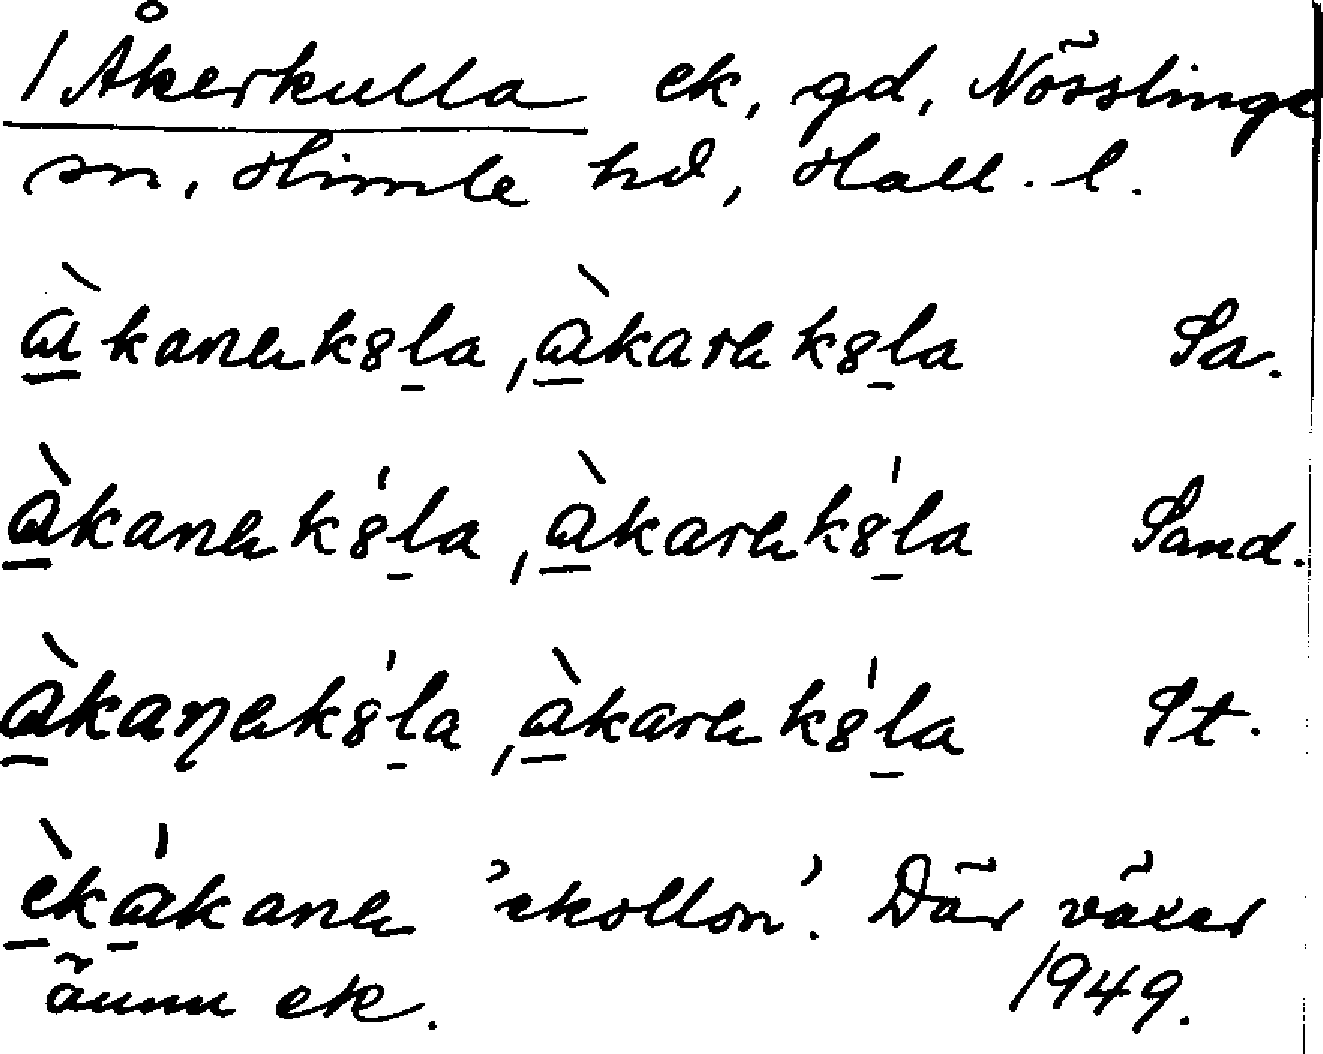 / Åkerkulla ek, gd, Nösslinge
sn, Himle hd, Hall. l.
àkanaksla, àkaraksla Sa.
àkanaks'la, àkaraks'la Sand.
àkaŋaks'la, àkaraks'la St.
èkákana 'ekollon'. Där växer
ännu ek. 1949.